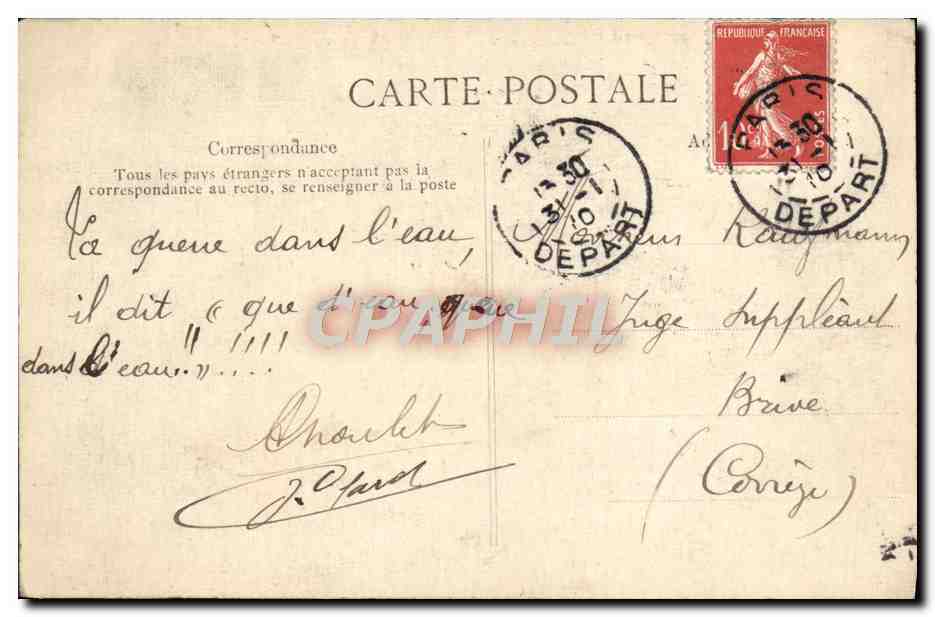 CARTE POSTALE
RÉPUBLIQUE FRANÇAISE
Correspondance
Tous les pays étrangers n'acceptant pas la
correspondance au recto, se renseigner à la poste
PARIS
13 30
31 -1
10
DEPART
PARIS
13 30
31 -1
10
DEPART
La queue dans l'eau,
il dit " que d'eau, queue
dans l'eau.." !!!!
Monsieur Kaufmann,
Juge Suppléant
Brive
(Corrèze)
CPAPHIL